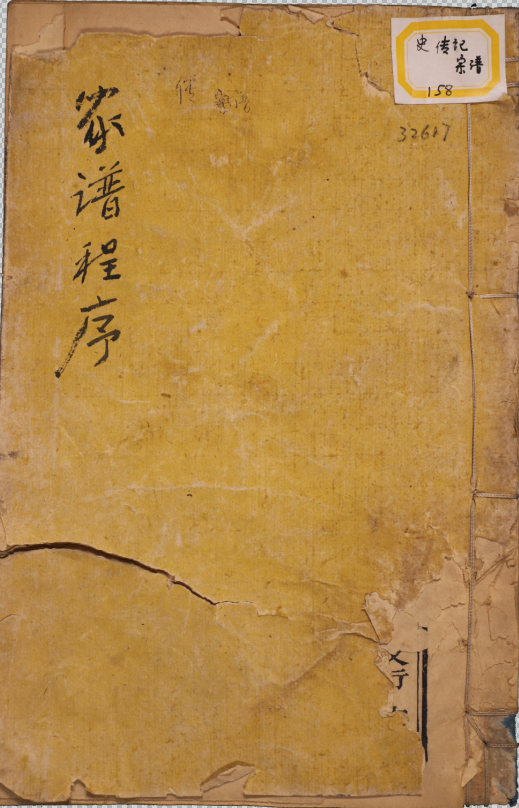 史传记
宗谱
158
32617
家谱程序
传
宗谱